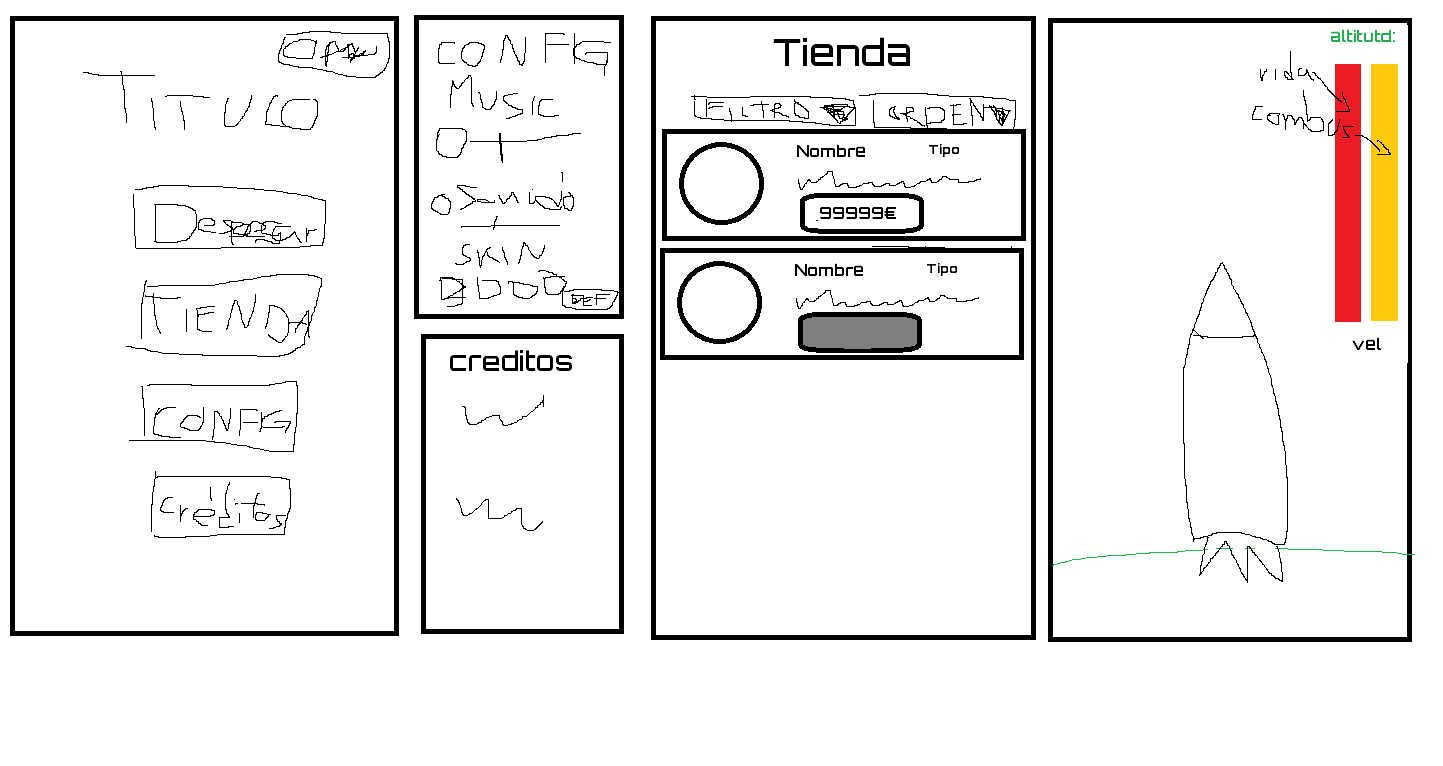 TITULO
Despegar
TIENDA
CONFIG
créditos
CONFIG
MUSIC
Sonido
SKIN
DEF
creditos
Tienda
FILTRO ORDEN
Nombre Tipo
99999€
Nombre Tipo
altitutd:
vida
combus
vel